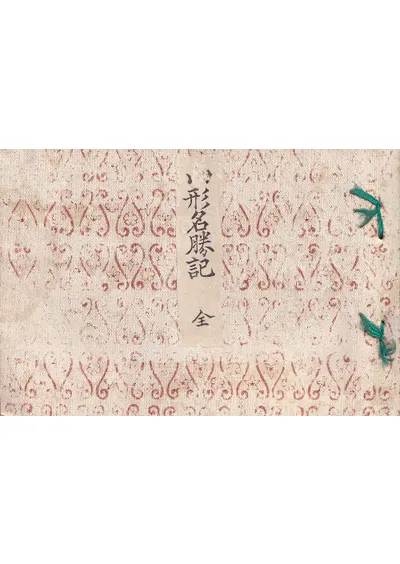 形名勝記
全